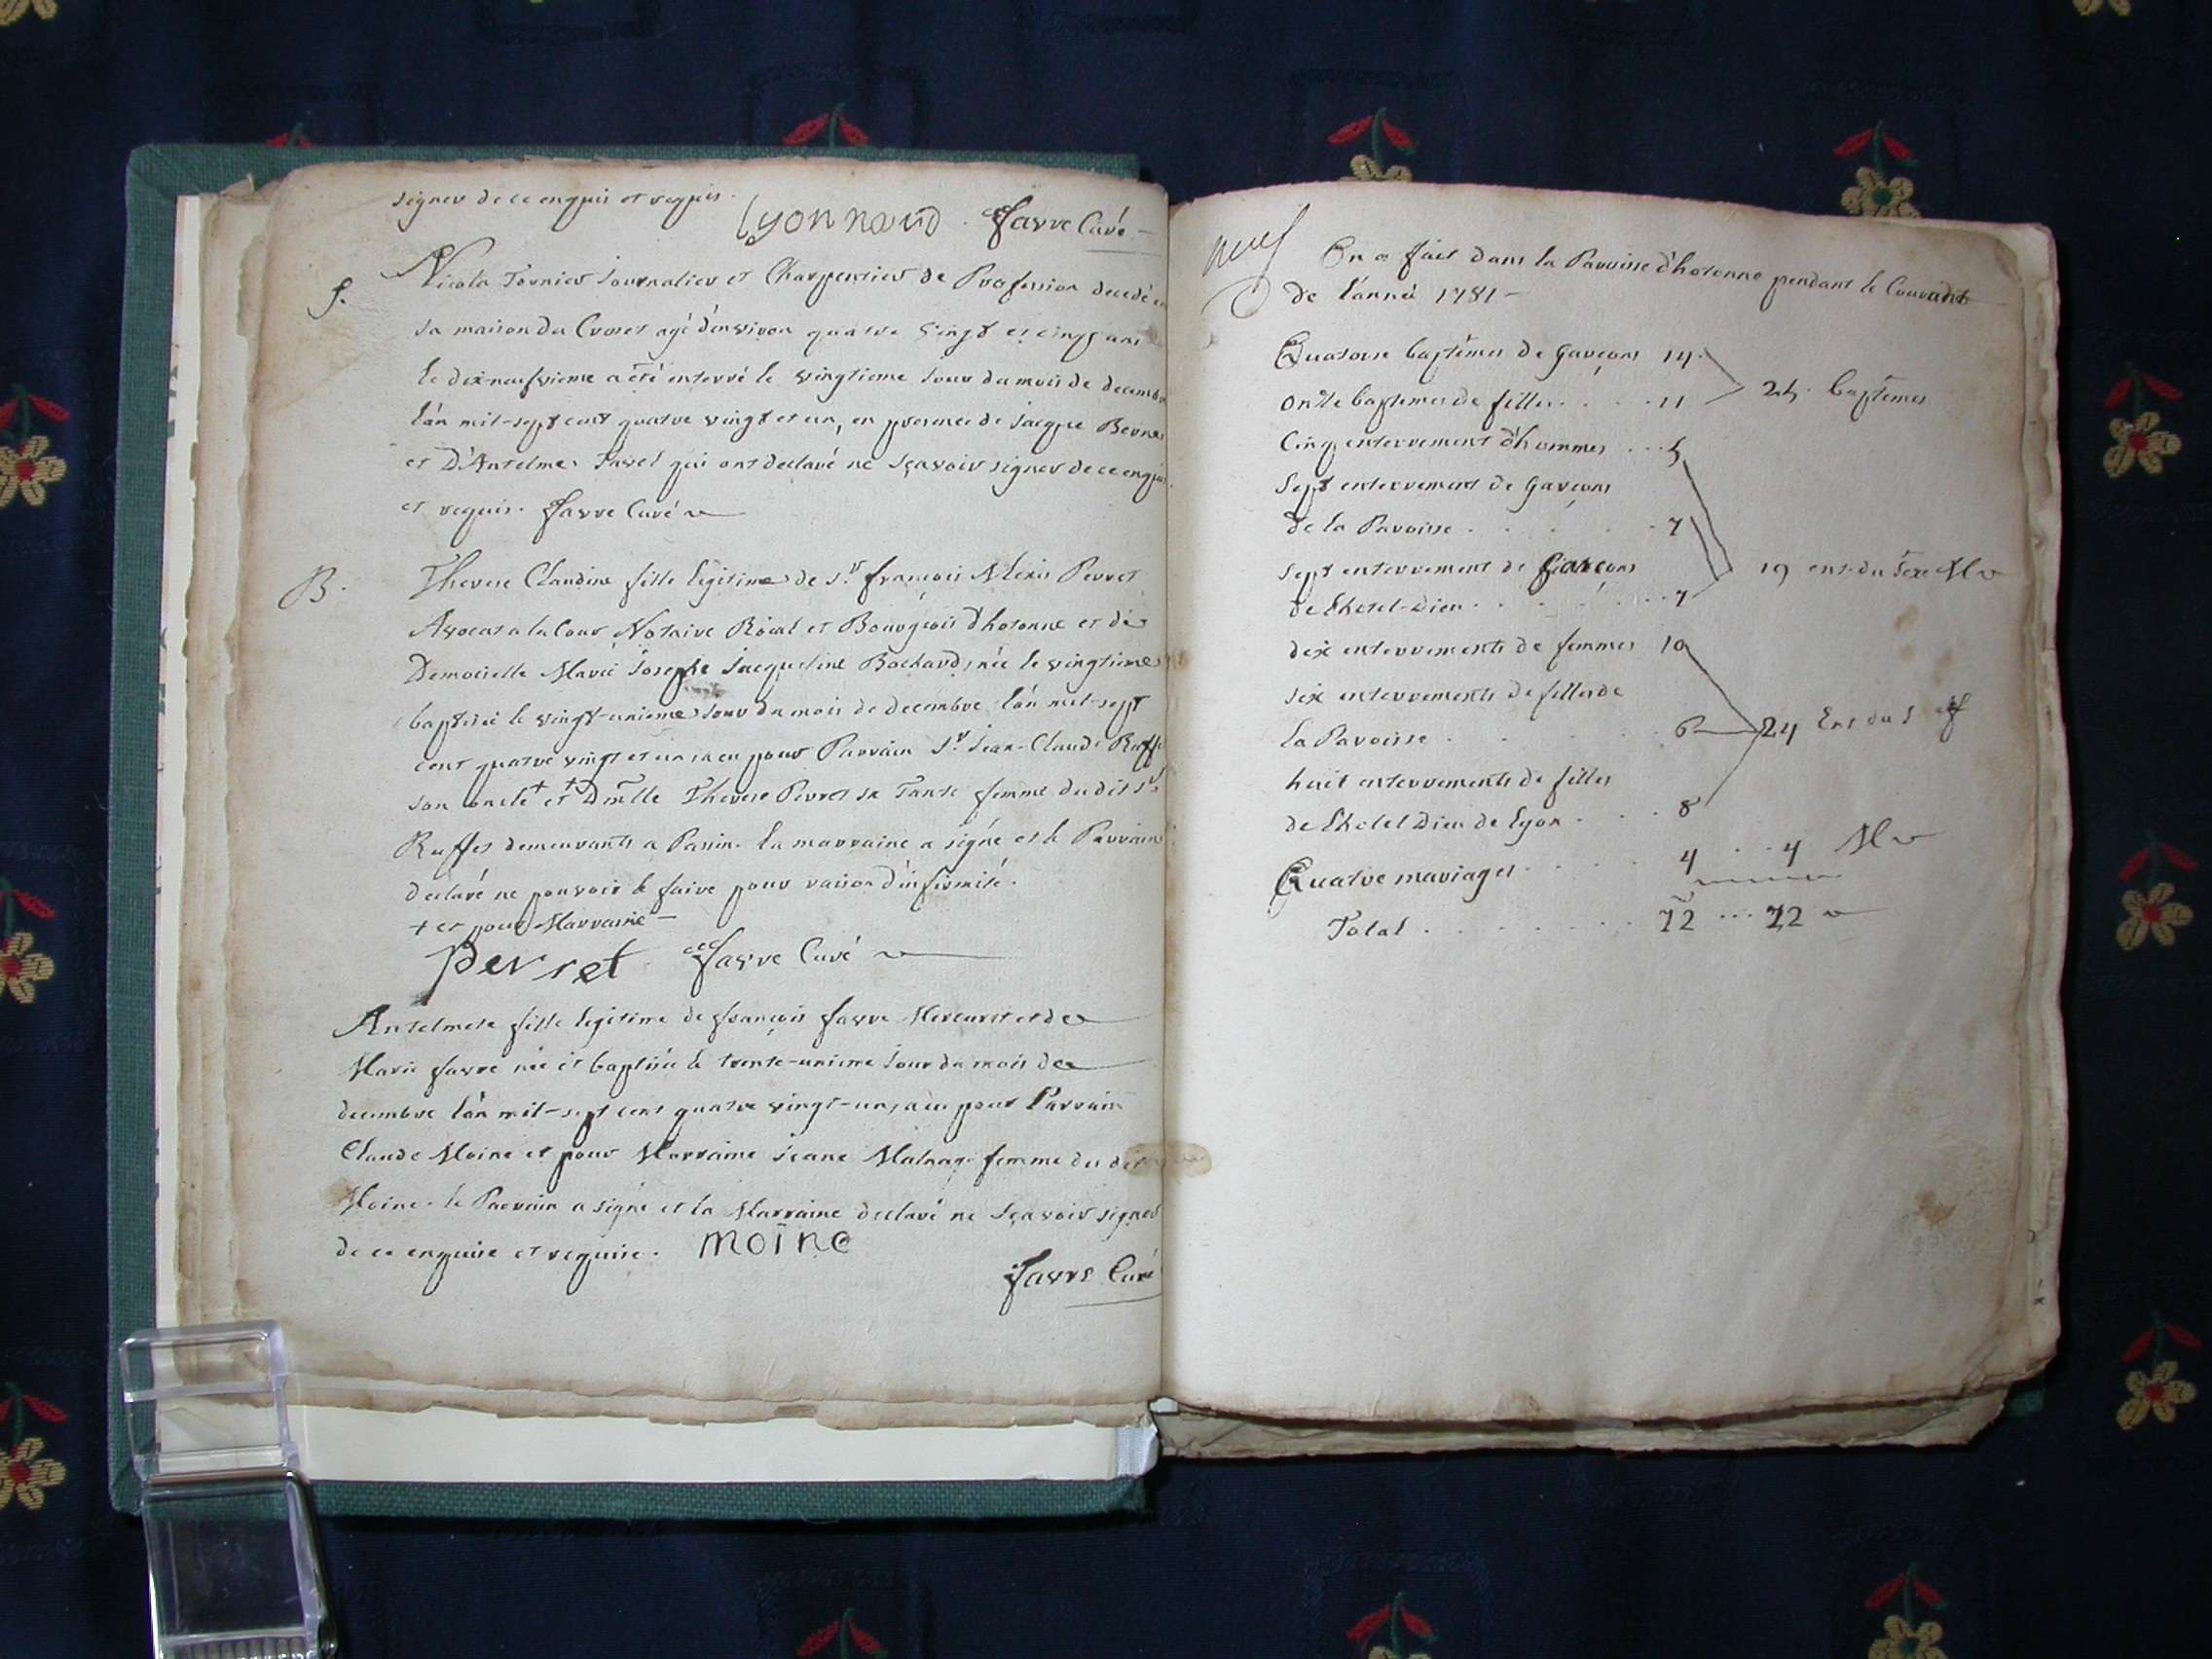 signer de ce enquis et requis.
Lyonnaud . favre Curé
S. Nicola Tornier Journalier et Charpentier de Profession decedé en
sa maison du Croset agé d'environ quatre vingt et cinq ans
le dixneufvieme a été enterré le vingtieme Jour du mois de decembre
l'an mil-sept cent quatre vingt et un, en presence de Jacque Berne
et D'Antelme Tavel qui ont declaré ne sçavoir signer de ce enquis
et requis. favre Curé
B. Therese Claudine fille legitime de Sr. françois Alexis Perret
Avocat a la Cour Notaire Roial et Bourgeois d'hotonne et de
Demoiselle Marie Josephe Jacqueline Bochard, née le vingtieme
baptisée le vingt-unieme Jour du mois de decembre l'an mil-sept
cent quatre vingt et un, a eu pour Parrain Sr. Jean-Claude Ruffe
son oncle + et + Dmlle Therese Perret sa Tante femme du dit Sr.
Ruffet demeurants a Passin. la marraine a signé et le Parrain
declaré ne pouvoir le faire pour raison d'infirmité.
+ et pour Marraine
Perret favre Curé
Antelmete fille legitime de françois favre et de
Marie favre née et baptisée le trente-unieme Jour du mois de
decembre l'an mil-sept cent quatre vingt-un, a eu pour Parrain
Claude Moine et pour Marraine Jeane femme du dit
Moine. le Parrain a signé et la Marraine declaré ne sçavoir signer
de ce enquise et requise. moine
favre Curé
On a fait dans la Parroisse d'hotonne pendant le Courant
de l'anneé 1781
Quatorse baptêmes de Garçons 14.
25. baptemes
onze baptemes de filles . . . . 11
Cinq enterrement d'hommes . . . 5
Sept enterrement de Garçons
de la Paroisse . . . . . . 7
Sept enterrement de Garçons
19 ent. du Sexe M
de l'hotel-Dieu . . . . . . 7
dix enterrements de femmes 10
six enterrements de filles de
la Paroisse . . . . . . 6
24 Ent du S f
huit enterrements de filles
de l'hotel Dieu de Lyon . . . 8
Quatre mariages . . . . . 4 . . 4 M
Total . . . . . . . . 72 . . . 72